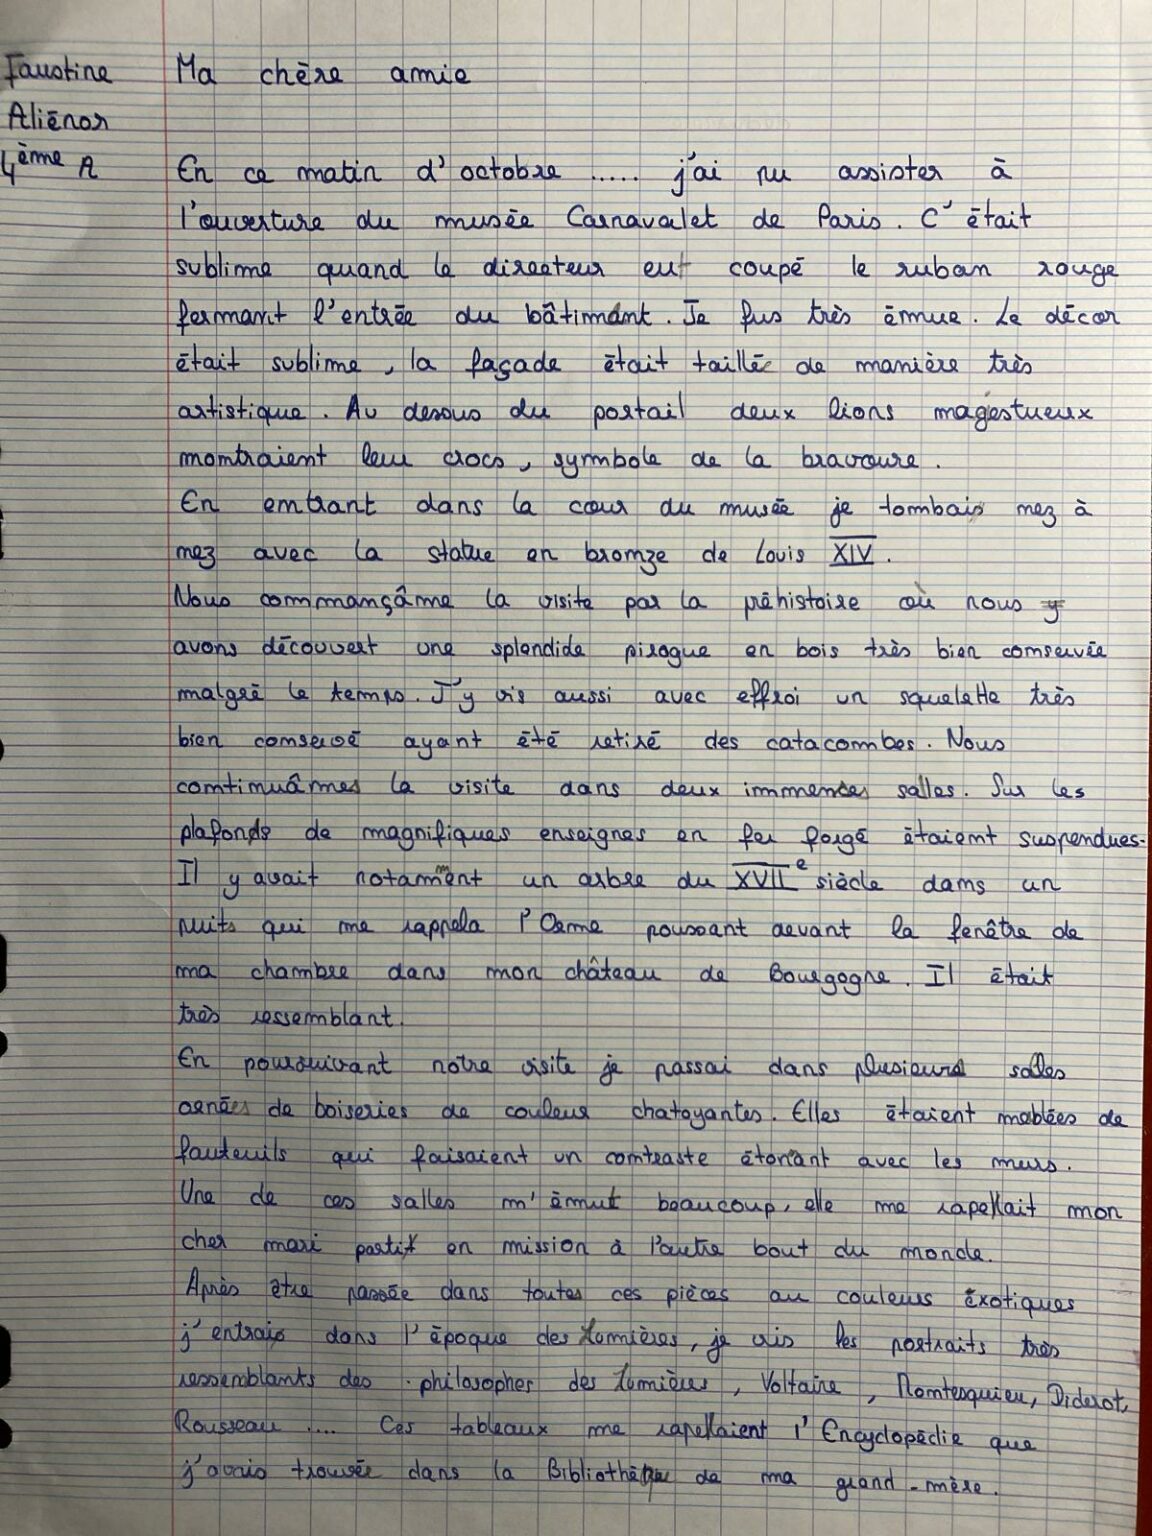 Faustine
Aliénor
4ème A
Ma chère amie
En ce matin d'octobre ..... j'ai pu assister à
l'ouverture du musée Carnavalet de Paris. C'était
sublime quand le directeur eut coupé le ruban rouge
fermant l'entrée du bâtiment. Je fus très émue. Le décor
était sublime, la façade était taillée de manière très
artistique. Au desous du portail deux lions magestueux
montraient leur crocs, symbole de la bravoure.
En entrant dans la cour du musée je tombais nez à
nez avec la statue en bronze de Louis XIV.
Nous commançâme la visite par la préhistoire où nous y
avons découvert une splendide pirogue en bois très bien conservée
malgré le temps. J'y vis aussi avec effroi un squelette très
bien conservé ayant été retiré des catacombes. Nous
continuâmes la visite dans deux immenses salles. Sur les
plafonds de magnifiques enseignes en fer forgé étaient suspendues.
Il y avait notamment un arbre du XVIIe siècle dans un
puits qui me rappela l'Orme poussant devant la fenêtre de
ma chambre dans mon château de Bourgogne. Il était
très ressemblant.
En poursuivant notre visite je passai dans plusieurs salles
ornées de boiseries de couleur chatoyantes. Elles étaient meblées de
fauteuils qui faisaient un contraste étonant avec les murs.
Une de ces salles m'émut beaucoup, elle me rapellait mon
cher mari partit en mission à l'autre bout du monde.
Après être passée dans toutes ces pièces au couleurs éxotiques
j'entrais dans l'époque des Lumières, je vis les portraits très
ressemblants des philosophes des Lumières, Voltaire, Montesquieu, Diderot,
Rousseau .... Ces tableaux me rapellaient l'Encyclopédie que
j'avais trouvée dans la Bibliothèque de ma grand-mère.